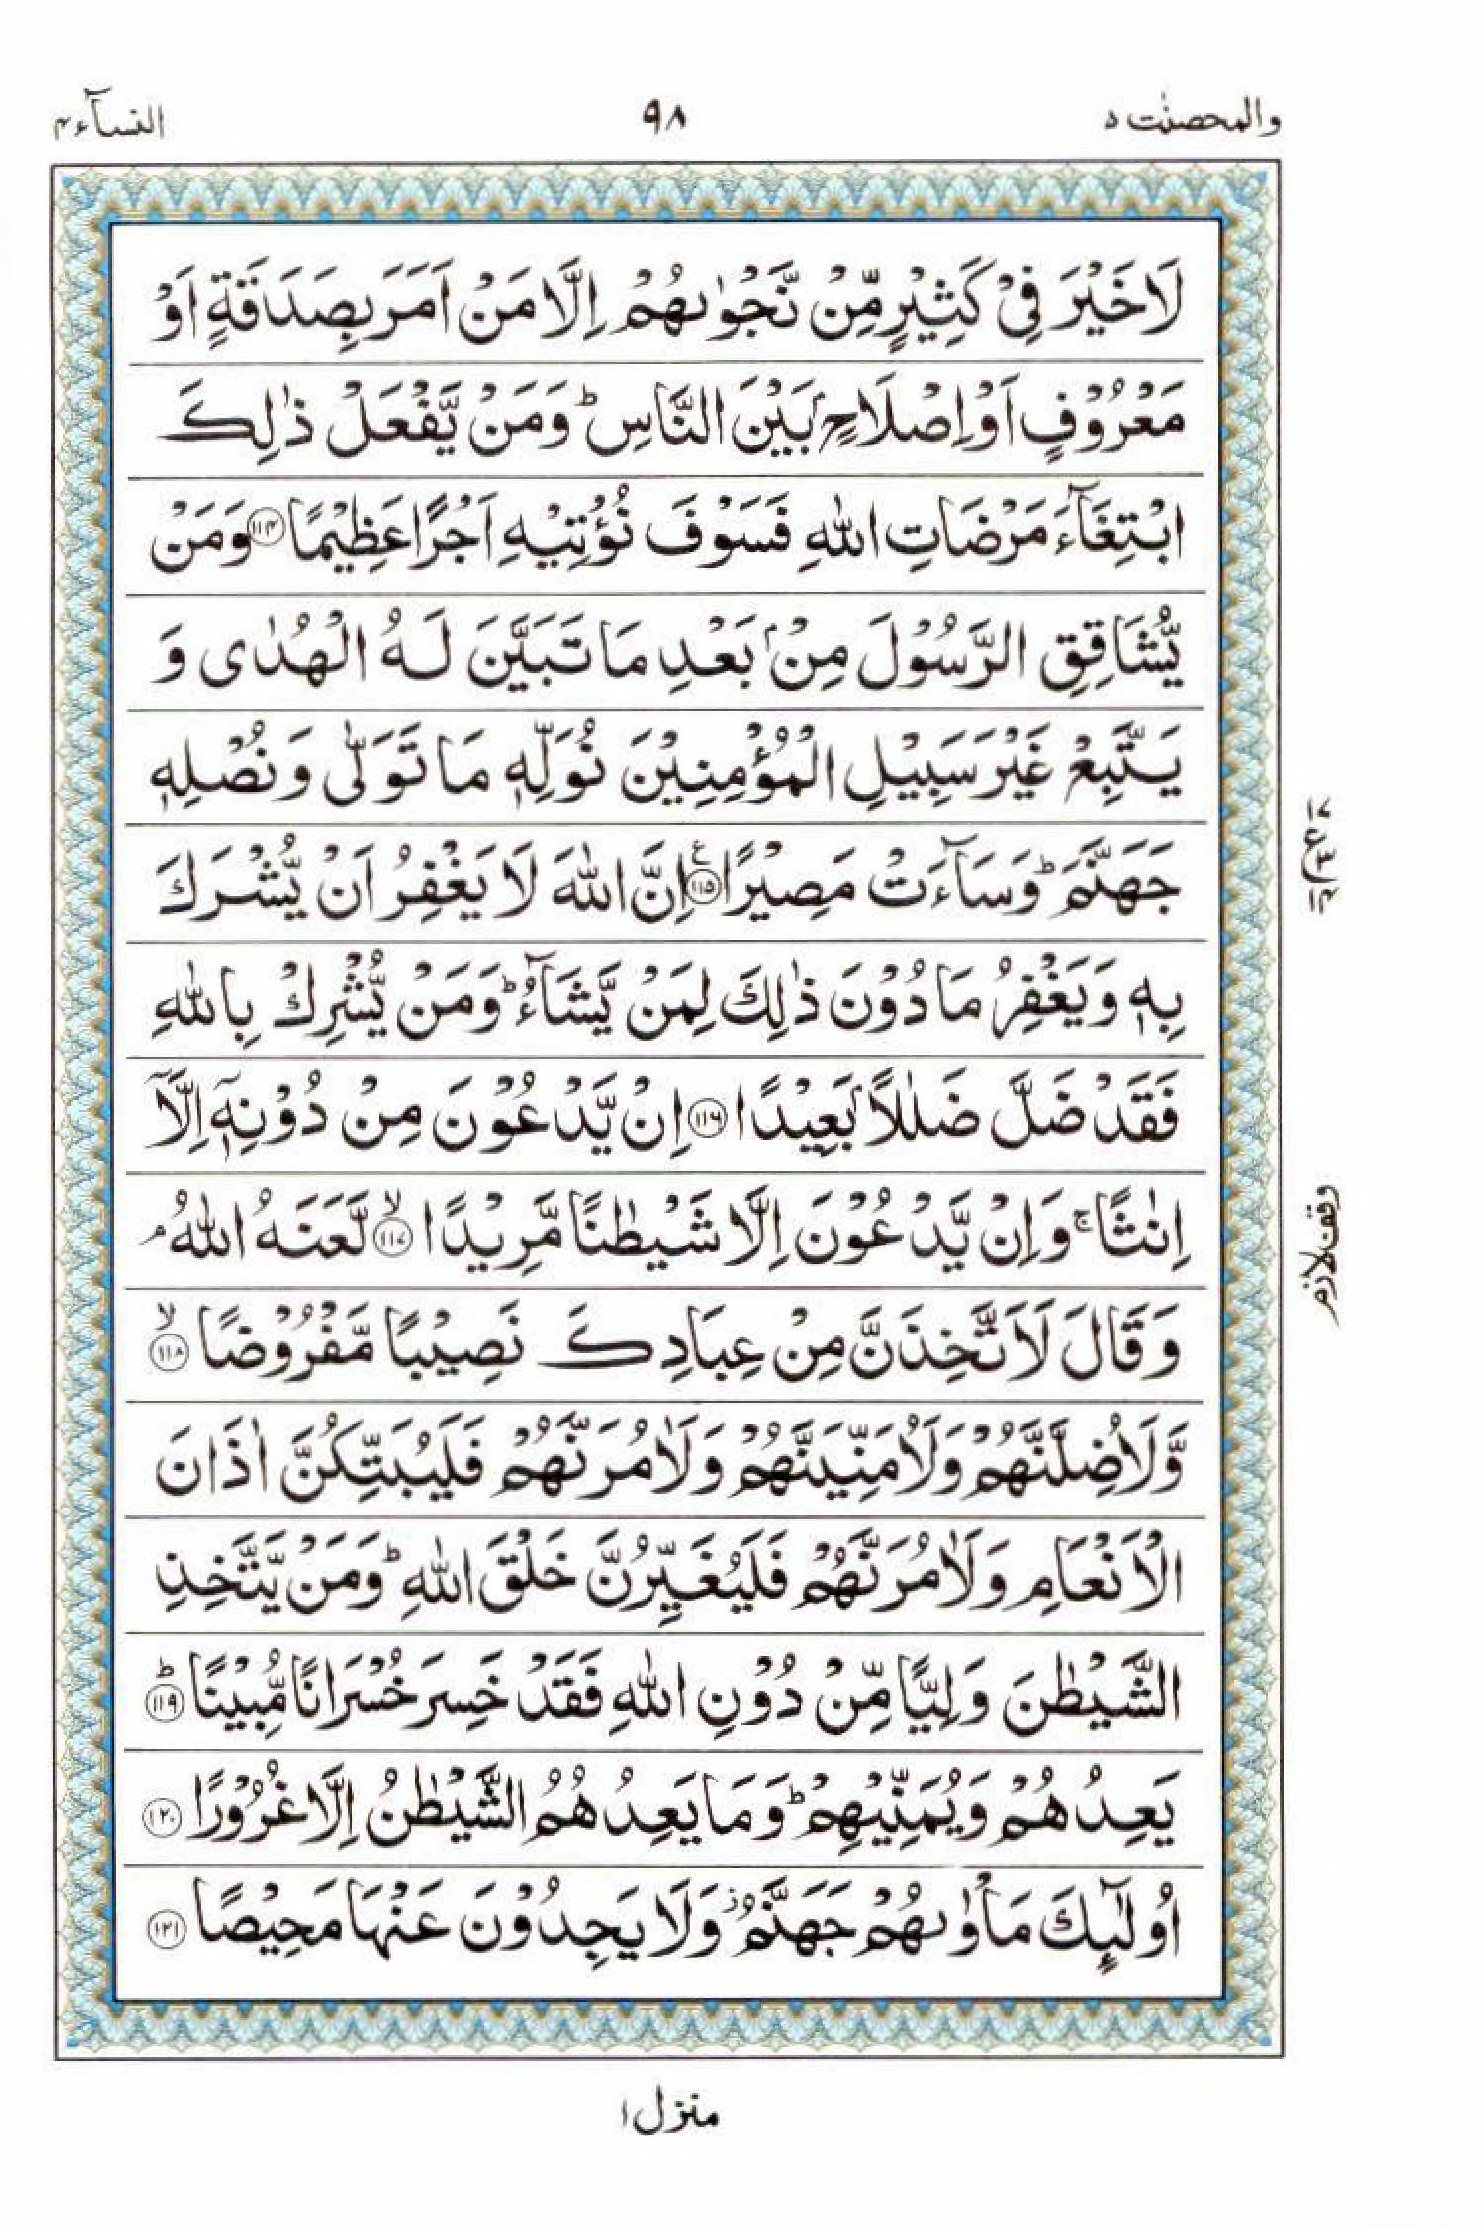 والمحصنٰت ۵
۹۸
النسآء ۴
لَا خَيْرَ فِيْ كَثِيْرٍ مِّنْ نَّجْوٰىهُمْ اِلَّا مَنْ اَمَرَ بِصَدَقَةٍ اَوْ
مَعْرُوْفٍ اَوْ اِصْلَاحٍۭ بَيْنَ النَّاسِ ؕ وَمَنْ يَّفْعَلْ ذٰلِكَ
ابْتِغَآءَ مَرْضَاتِ اللّٰهِ فَسَوْفَ نُؤْتِيْهِ اَجْرًا عَظِيْمًا ﴿۱۱۴﴾ وَمَنْ
يُّشَاقِقِ الرَّسُوْلَ مِنْۢ بَعْدِ مَا تَبَيَّنَ لَهُ الْهُدٰى وَ
يَتَّبِعْ غَيْرَ سَبِيْلِ الْمُؤْمِنِيْنَ نُوَلِّهٖ مَا تَوَلّٰى وَنُصْلِهٖ
جَهَنَّمَ ؕ وَسَآءَتْ مَصِيْرًا ﴿۱۱۵﴾ ع اِنَّ اللّٰهَ لَا يَغْفِرُ اَنْ يُّشْرَكَ
بِهٖ وَيَغْفِرُ مَا دُوْنَ ذٰلِكَ لِمَنْ يَّشَآءُ ؕ وَمَنْ يُّشْرِكْ بِاللّٰهِ
فَقَدْ ضَلَّ ضَلٰلًاۢ بَعِيْدًا ﴿۱۱۶﴾ اِنْ يَّدْعُوْنَ مِنْ دُوْنِهٖۤ اِلَّاۤ
اِنٰثًا ۚ وَاِنْ يَّدْعُوْنَ اِلَّا شَيْطٰنًا مَّرِيْدًا ﴿۱۱۷﴾ ۙ لَّعَنَهُ اللّٰهُ ۘ
وَقَالَ لَاَتَّخِذَنَّ مِنْ عِبَادِكَ نَصِيْبًا مَّفْرُوْضًا ﴿۱۱۸﴾ ۙ
وَّلَاُضِلَّنَّهُمْ وَلَاُمَنِّيَنَّهُمْ وَلَاٰمُرَنَّهُمْ فَلَيُبَتِّكُنَّ اٰذَانَ
الْاَنْعَامِ وَلَاٰمُرَنَّهُمْ فَلَيُغَيِّرُنَّ خَلْقَ اللّٰهِ ؕ وَمَنْ يَّتَّخِذِ
الشَّيْطٰنَ وَلِيًّا مِّنْ دُوْنِ اللّٰهِ فَقَدْ خَسِرَ خُسْرَانًا مُّبِيْنًا ﴿۱۱۹﴾ ؕ
يَعِدُهُمْ وَيُمَنِّيْهِمْ ؕ وَمَا يَعِدُهُمُ الشَّيْطٰنُ اِلَّا غُرُوْرًا ﴿۱۲۰﴾
اُولٰٓئِكَ مَاْوٰىهُمْ جَهَنَّمُ ؗ وَلَا يَجِدُوْنَ عَنْهَا مَحِيْصًا ﴿۱۲۱﴾
وقف لازم
منزل ۱